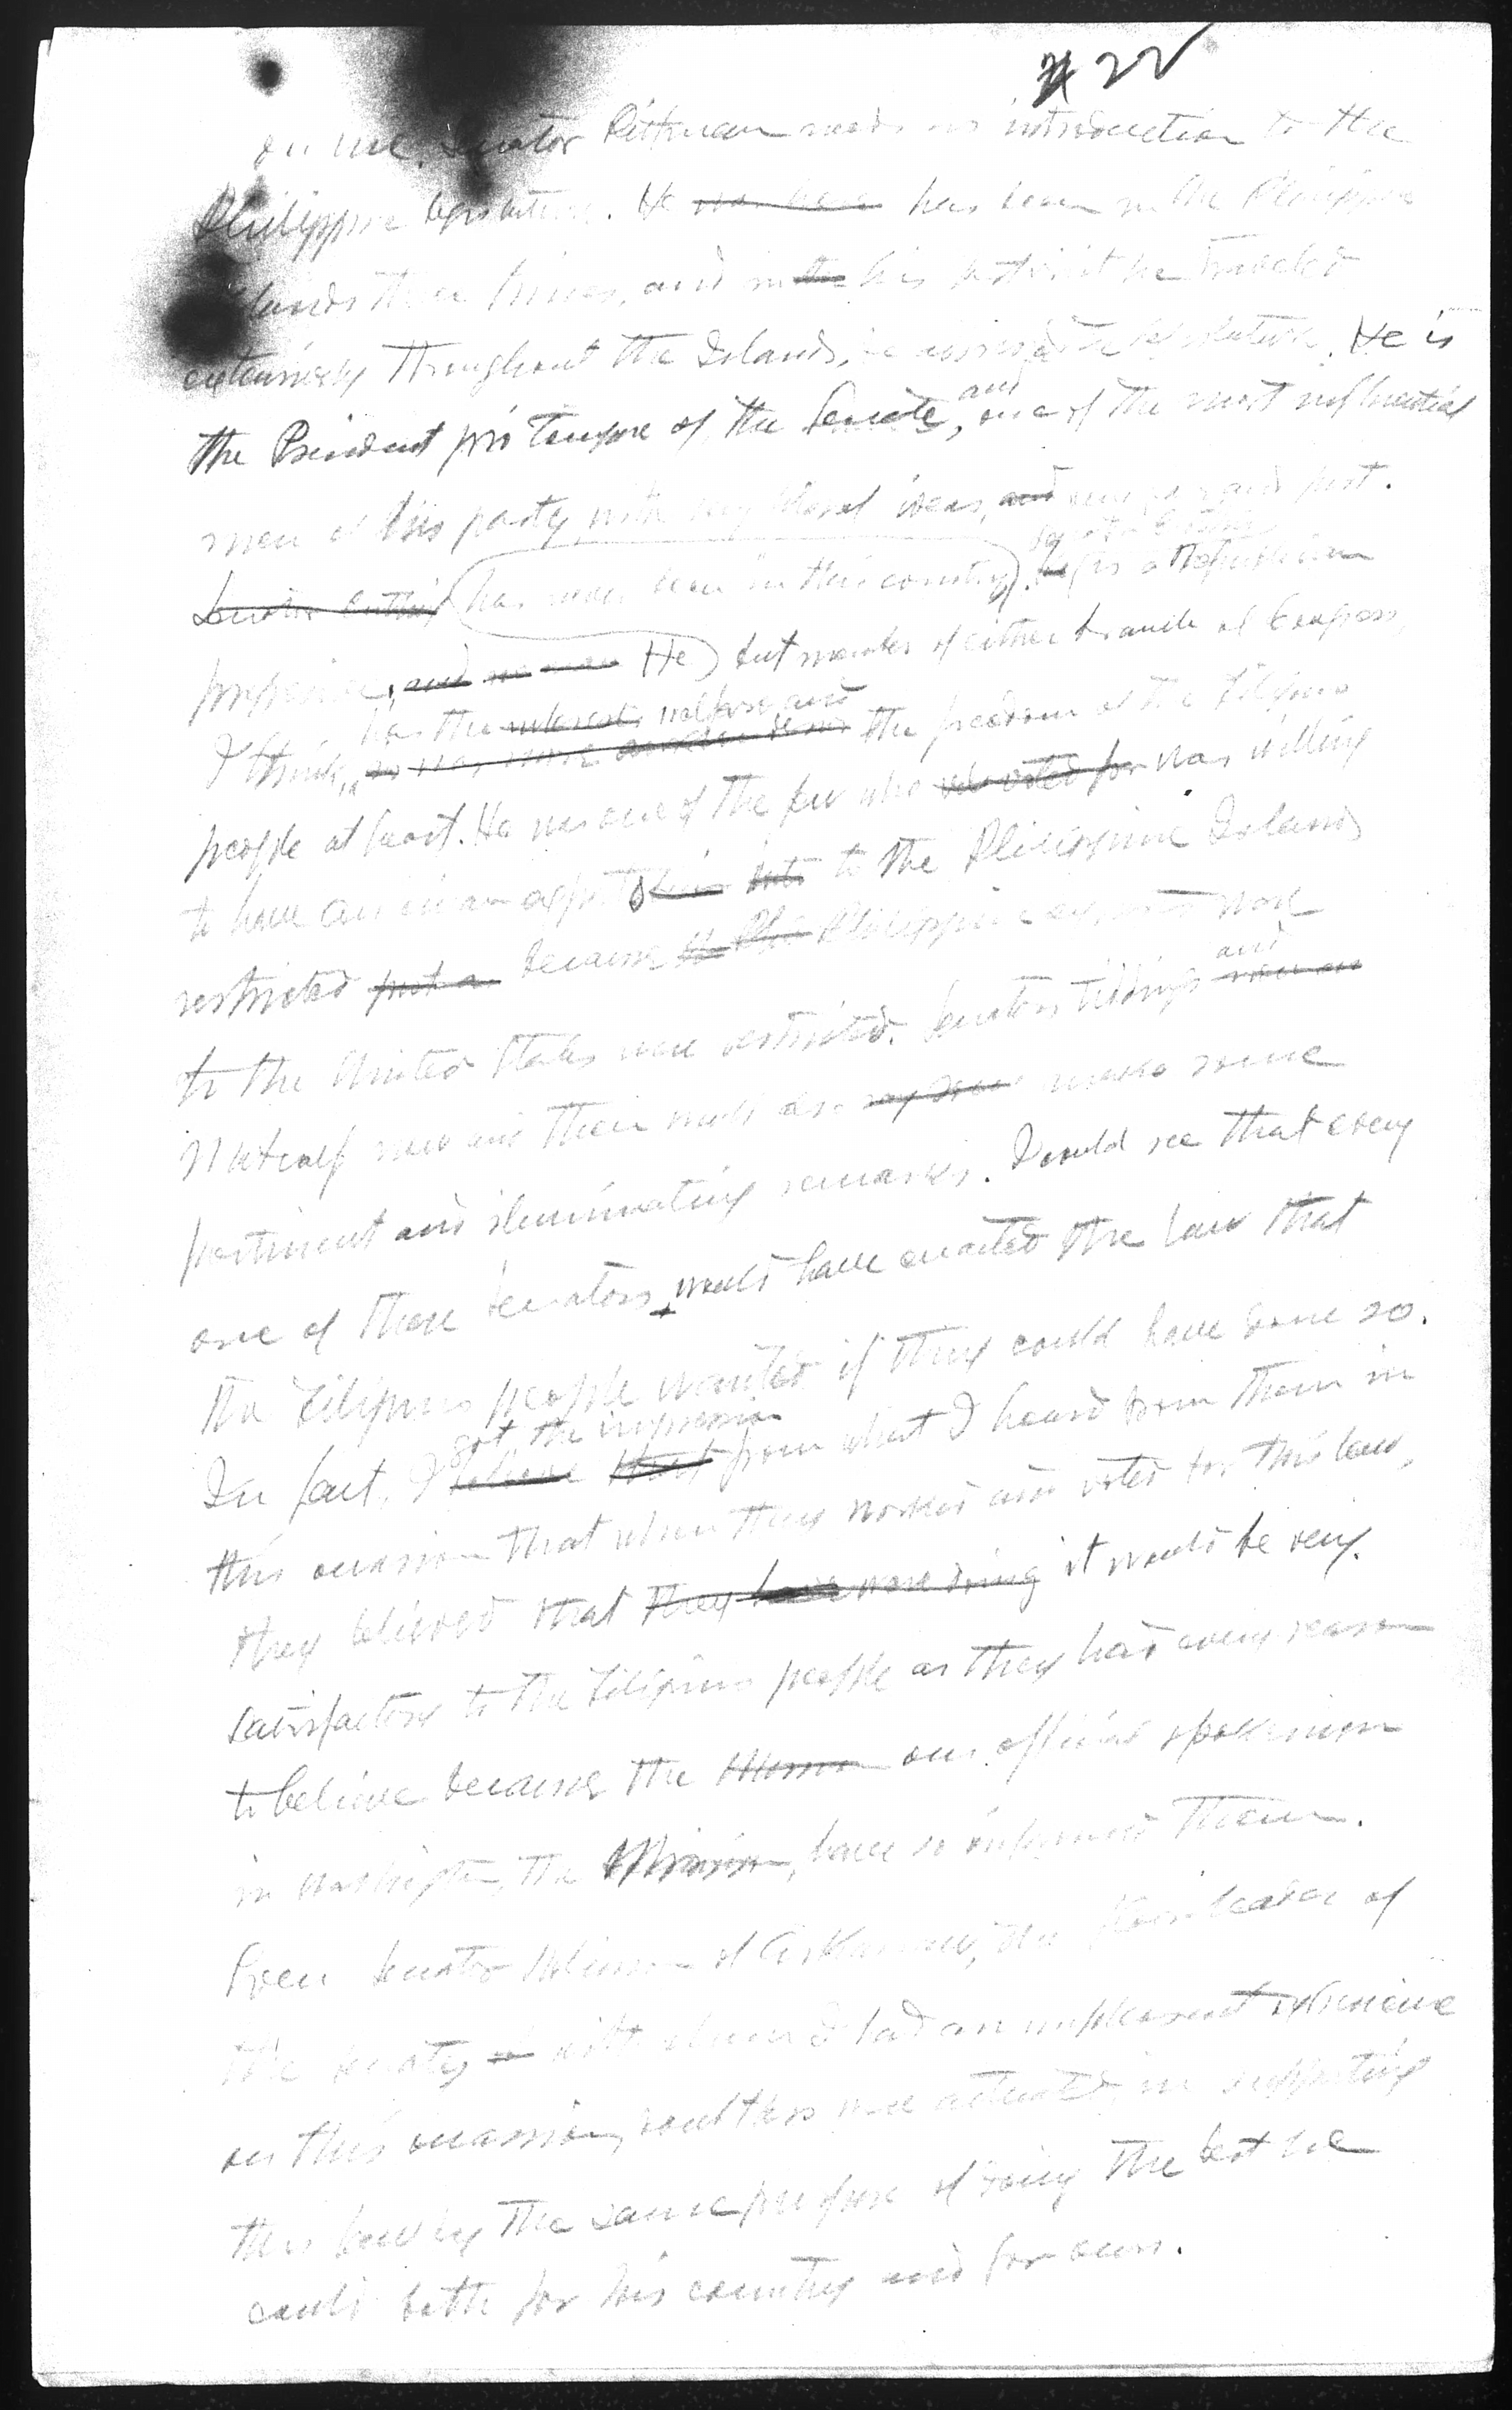 22
on me. Senator Pittman needs no introduction to the
Philippine legislature. He has been in the Philippine
Islands three times, and in the his last visit he traveled
extensively throughout the Islands, he addressed the legislature. He is
the President pro tempore of the Senate, and one of the most influential
men of his party, with very liberal ideas, and very fair and just.
Senator Cutting has never been in this country. Senator Cutting He is a Republican
progressive, and no man He) but member of either branch of Congress,
I think, has the interests welfare and the freedom of the Filipino
people at heart. He was one of the few who voted for was willing
to have American exports to the Philippine Islands
restricted because the Phil Philippine exports
to the United States were restricted. Senators Tydings and
Metcalf now and then would also say some make some
pertinent and illuminating remarks. I could see that every
one of these Senators would have enacted the law that
the Filipino people wanted if they could have done so.
In fact, I got the impression believe that from what I heard from them in
this occasion that when they worked and voted for this law,
they believed that they have were doing it would be very
satisfactory to the Filipino people as they had every reason
to believe because the Mission our official spokesmen
in Washington, the Mission, have so informed them.
Even Senator Robinson of Arkansas, the floor leader of
the Senate, with whom I had an unpleasant experience
on this occasion, doubtless was actuated in supporting
this law by the same purpose of doing the best he
could both for his country and for ours.